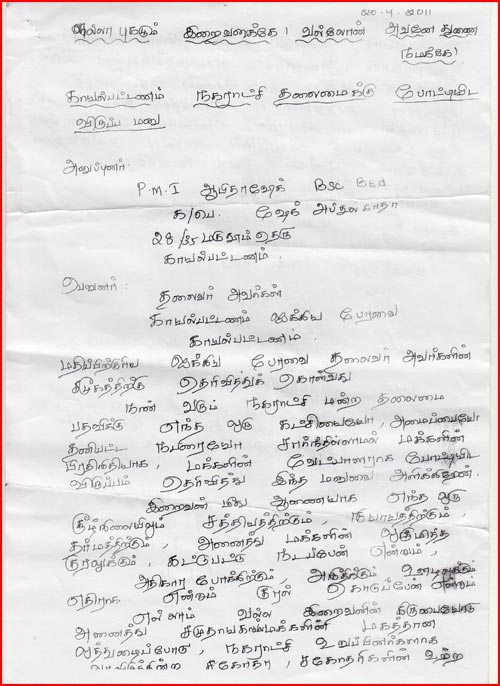 20-4-2011
எல்லா புகழும் இறைவனுக்கே! வல்லோன் அவனே துணை
நமக்கே!
காயல்பட்டணம் நகராட்சி தலைமைக்கு போட்டியிட
விருப்ப மனு
அனுப்புனர்:
P.M.I ஆபிதாஷேக் BSc BEd
க/பெ. ஷேக் அப்துல் காதர்
28/35 மகுதூம் தெரு
காயல்பட்டணம்.
பெறுனர்:
தலைவர் அவர்கள்
காயல்பட்டணம் ஐக்கிய பேரவை
காயல்பட்டணம்.
மதிப்பிற்குரிய ஐக்கிய பேரவை தலைவர் அவர்களின்
சமூகத்திற்கு தெரிவித்துக் கொள்வது
நான் வரும் நகராட்சி மன்ற தலைமை
பதவிக்கு எந்த ஒரு கட்சியையோ, அமைப்பையோ
தனிபட்ட நபரையோ சார்ந்தில்லாமல் மக்களின்
பிரதிநிதியாக, மக்களின் வேட்பாளராக போட்டியிட
விருப்பம் தெரிவித்து இந்த மனுவை அளிக்கிறேன்.
இறைவன் மீது ஆணையாக எந்த ஒரு
சூழ்நிலையிலும் சத்தியத்திற்கும், நியாயத்திற்கும்,
தர்மத்திற்கும், அனைத்து மக்களின் ஒருமித்த
குரலுக்கும், கட்டுபட்டு நடப்பேன் என்றும்,
அதிகார போக்கிற்கும், அநீதிக்கும், ஊழலுக்கும்
எதிராக என்றும் குரல் கொடுப்பேன் என்றும்
எல்லாம் வல்ல இறைவனின் கிருபையோடு
அனைத்து சமுதாய மக்களின் மகத்தான
ஒத்துழைப்போடு, நகராட்சி உறுப்பினர்களாக
வரவிருக்கின்ற சகோதர, சகோதரிகளின் உற்ற